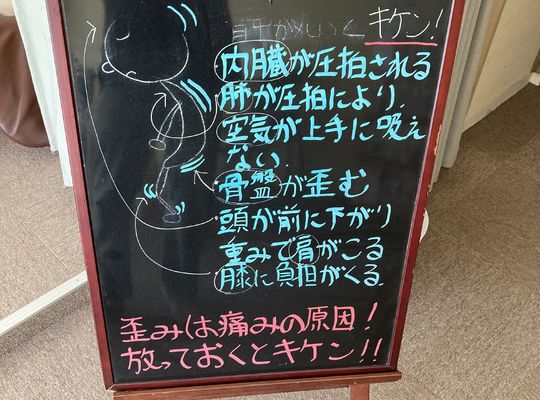 背中が丸いと キケン!
内臓が圧拍される
肺が圧拍により、
空気が上手に吸え
ない.
骨盤が歪む
頭が前に下がり
重みで肩がこる
膝に負担がくる.
歪みは痛みの原因！
放っておくとキケン!!